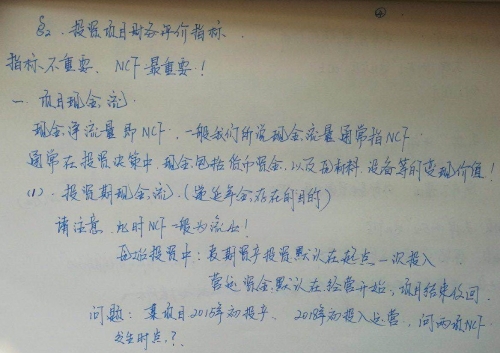 §2. 投资项目财务评价指标.
指标不重要、NCF最重要!
一. 项目现金流.
现金净流量即NCF. 一般我们所说现金流量通常指NCF.
通常在投资决策中. 现金包括货币资金, 以及原材料. 设备等的变现价值!
(1). 投资期现金流). (递延年金存在的目的)
请注意. 此时NCF一般为流出!
原始投资中: 长期资产投资默认在起点一次投入
营运资金默认在经营开始, 项目结束收回.
问题: 某项目2015年初投产、2018年初投入运营, 问两项NCF
发生时点?